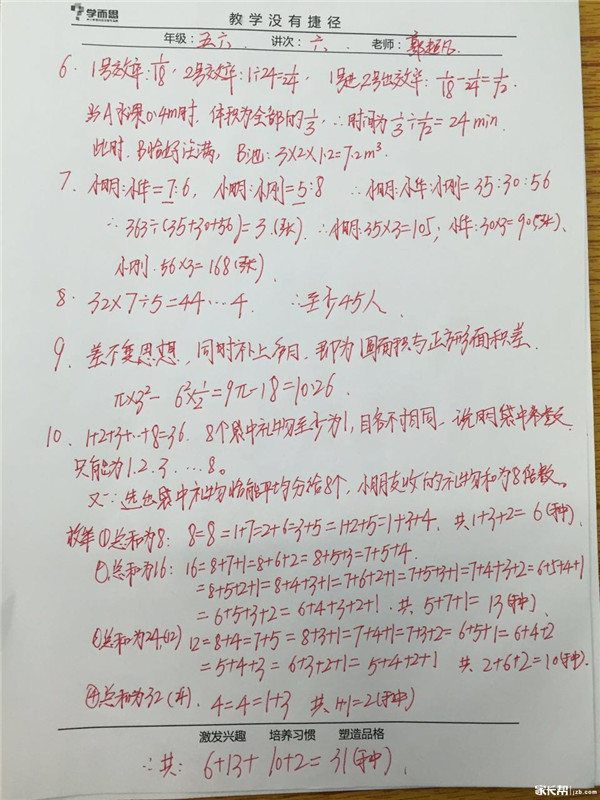 学而思
教学没有捷径
年级:五六 讲次:六 老师:
6. 1号效率:1/18, 2号效率:1÷24=1/24, 1号进,2号出效率:1/18-1/24=1/72.
当A水深0.4m时,体积为全部的1/3,∴时间为1/3÷1/72=24min.
此时,B恰好注满,B池:3×2×1.2=7.2m³
7. 小明:小华=7:6, 小明:小刚=5:8 ∴小明:小华:小刚=35:30:56
∴363÷(35+30+56)=3.(张) ∴小明:35×3=105;小华:30×3=90(张)、
小刚:56×3=168(张)
8. 32×7÷5=44…4. ∴至少45人.
9. 差不变思想,同时补上空白,即为圆面积与正方形面积差.
π×3²-6²×1/2=9π-18=10.26.
10. 1+2+3+…+8=36. 8个袋中礼物至少为1,且各不相同,说明袋中个数
只能为1.2.3.…8。
又∵选出袋中礼物恰能平均分给8个,小朋友收的礼物和为8倍数。
枚举①总和为8: 8=8=1+7=2+6=3+5=1+2+5=1+3+4. 共1+3+2=6(种).
②总和为16: 16=8+7+1=8+6+2=8+5+3=7+5+4.
=8+5+2+1=8+4+3+1=7+6+2+1=7+5+3+1=7+4+3+2=6+5+4+1
=6+5+3+2=6+4+3+2+1. 共5+7+1=13(种)、
③总和为24,(12) 12=8+4=7+5=8+3+1=7+4+1=7+3+2=6+5+1=6+4+2
=5+4+3=6+3+2+1=5+4+2+1 共2+6+2=10(种).
④总和为32(4). 4=4=1+3 共1+1=2(种)
激发兴趣 培养习惯 塑造品格
∴共: 6+13+10+2=31(种).
家长帮 jzb.com